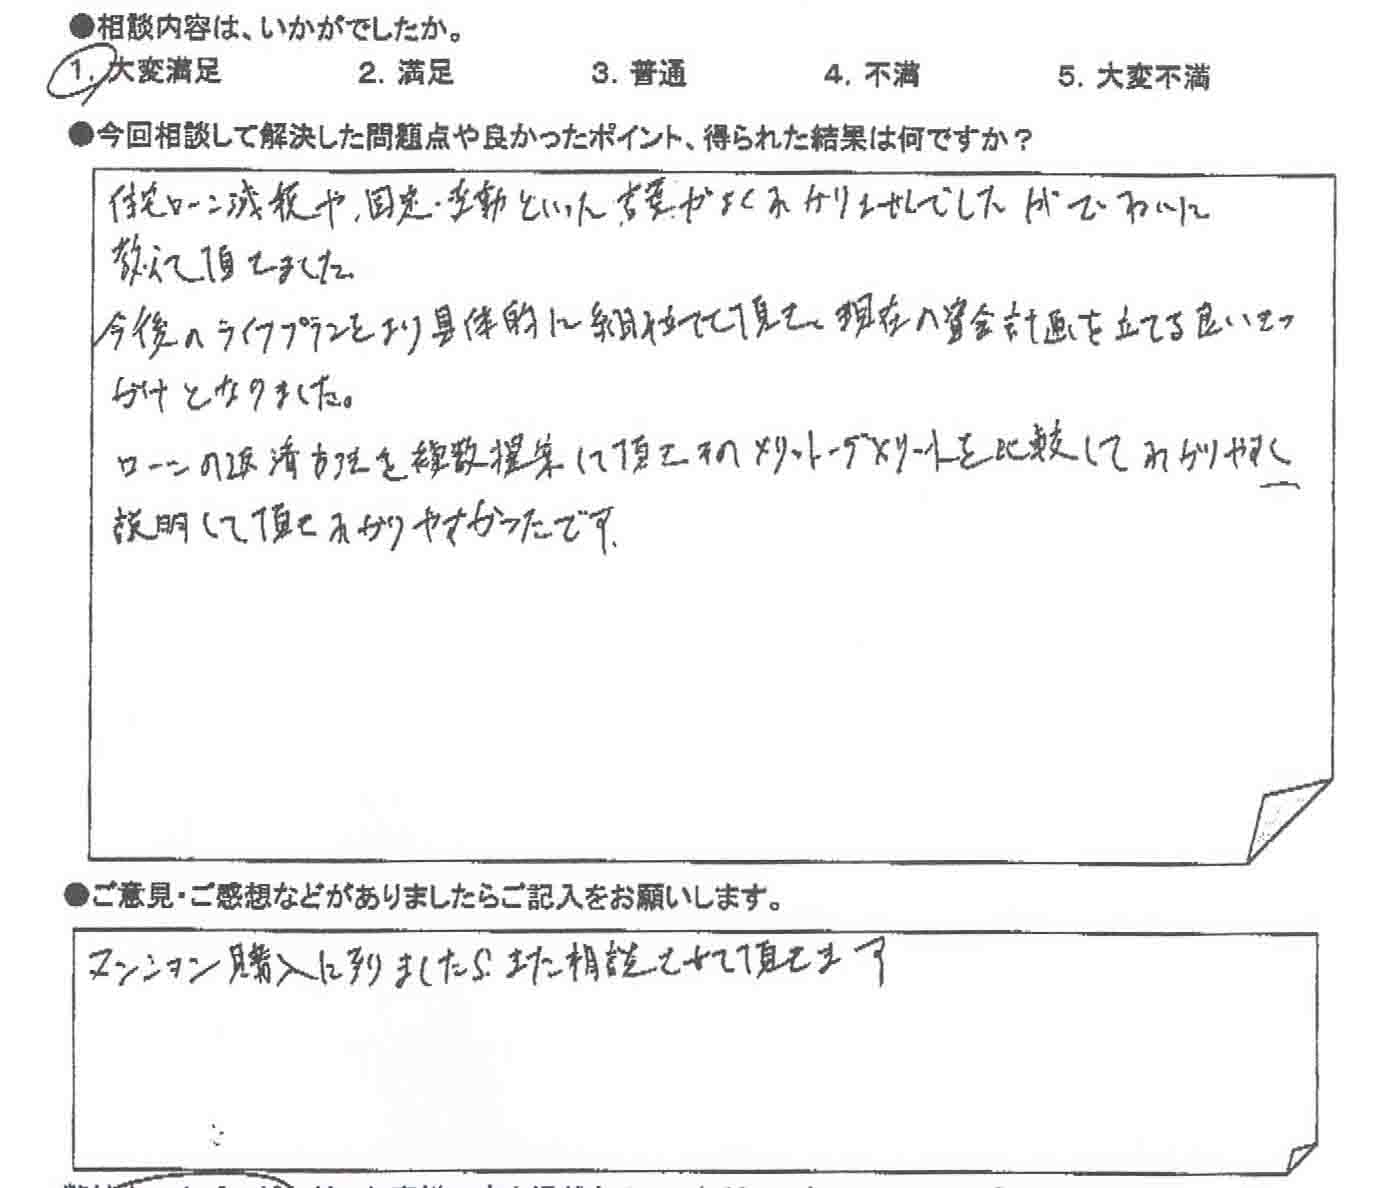 ●相談内容は、いかがでしたか。
1. 大変満足 2. 満足 3. 普通 4. 不満 5. 大変不満
●今回相談して解決した問題点や良かったポイント、得られた結果は何ですか？
住宅ローン減税や、固定・変動といった言葉がよくわかりませんでしたがていねいに
教えて頂きました。
今後のライフプランをより具体的に組み立てて頂き、現在の資金計画を立てる良いきっ
かけとなりました。
ローンの返済方法を複数提案して頂きそのメリット・デメリットを比較してわかりやすく
説明して頂きわかりやすかったです。
●ご意見・ご感想などがありましたらご記入をお願いします。
マンション購入に到りましたらまた相談させて頂きます